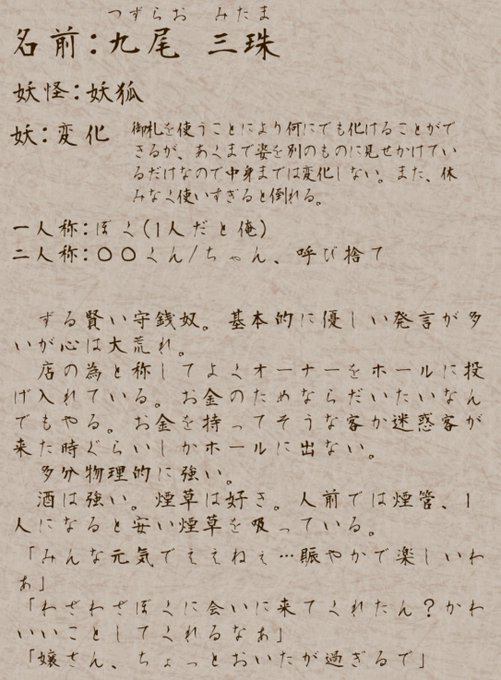 つずらお みたま
名前：九尾 三珠
妖怪：妖狐
妖：変化
御札を使うことにより何にでも化けることがで
きるが、あくまで姿を別のものに見せかけてい
るだけなので中身までは変化しない。また、休
みなく使いすぎると倒れる。
一人称：ぼく(1人だと俺)
二人称：〇〇くん/ちゃん、呼び捨て
ずる賢い守銭奴。基本的に優しい発言が多
いが心は大荒れ。
店の為と称してよくオーナーをホールに投
げ入れている。お金のためならだいたいなん
でもやる。お金を持ってそうな客か迷惑客が
来た時ぐらいしかホールに出ない。
多分物理的に強い。
酒は強い。煙草は好き。人前では煙管、1
人になると安い煙草を吸っている。
「みんな元気でええねぇ…賑やかで楽しいわ
ぁ」
「わざわざぼくに会いに来てくれたん？かわ
いいことしてくれるなぁ」
「嬢さん、ちょっとおいたが過ぎるで」